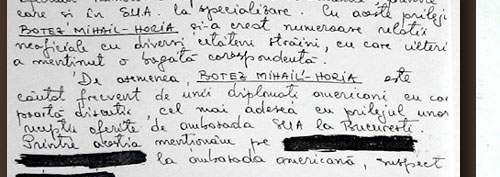 care și în SUA, la specializare. Cu aceste prileji
BOTEZ MIHAIL-HORIA și-a creat numeroase relații
neoficiale cu diverși cetățeni străini, cu care ulteri
a menținut o bogată corespondență.
De asemenea, BOTEZ MIHAIL-HORIA este
căutat frecvent de unii diplomați americani cu ca
poartă discuții, cel mai adesea cu prilejul unor
recepții oferite de ambasada SUA la București.
Printre aceștia menționăm pe
la ambasada americană, suspect